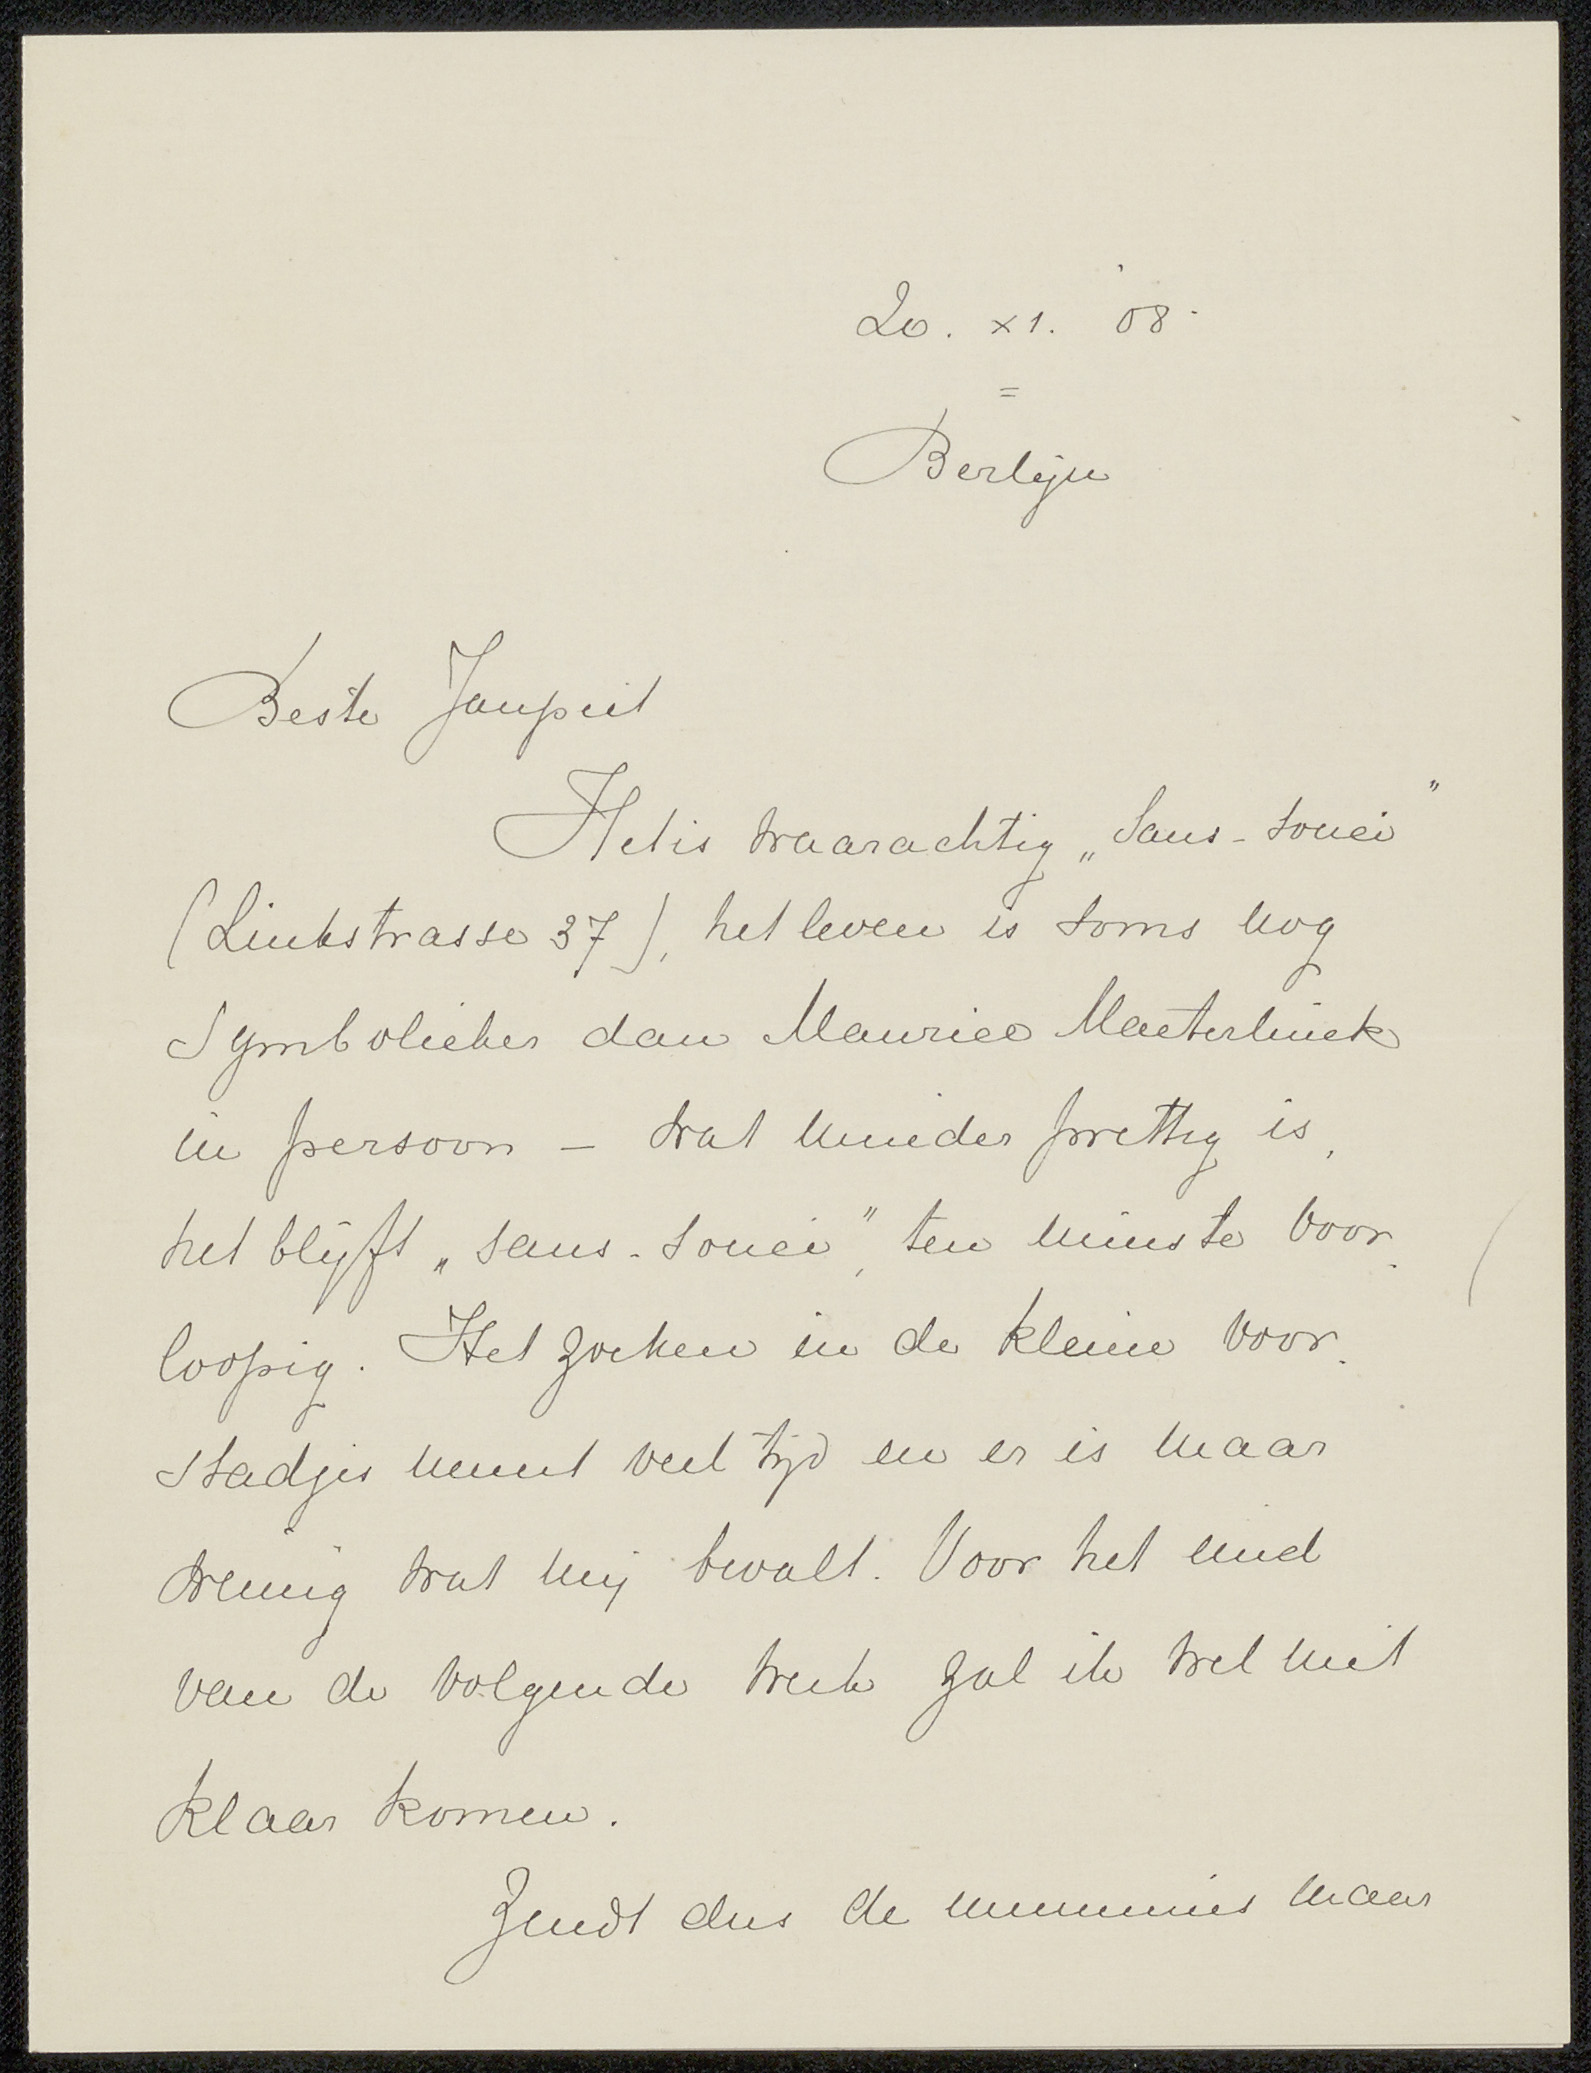 20. XI. '08.
=
Berlijn
Beste Janpiet
Het is waarachtig „Sans-souci”
(Linkstrasse 37), het leven is soms nog
symbolieker dan Maurice Maeterlinck
in persoon – wat minder prettig is,
het blijft „sans-souci”, ten minste voor-
loopig. Het zoeken in de kleine voor-
stadjes neemt veel tijd en er is maar
weinig wat mij bevalt. Voor het eind
van de volgende week zal ik wel niet
klaar komen.
Zendt dus de nummers maar